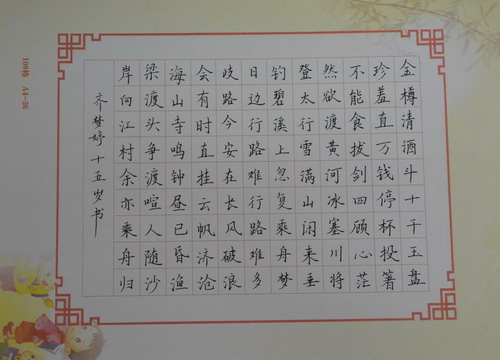 金樽清酒斗十千玉盘
珍羞直万钱停杯投箸
不能食拔剑四顾心茫
然欲渡黄河冰塞川将
登太行雪满山闲来垂
钓碧溪上忽复乘舟梦
日边行路难行路难多
歧路今安在长风破浪
会有时直挂云帆济沧
海山寺鸣钟昼已昏渔
梁渡头争渡喧人随沙
岸向江村余亦乘舟归
齐梦婷十五岁书
108格 A4-36